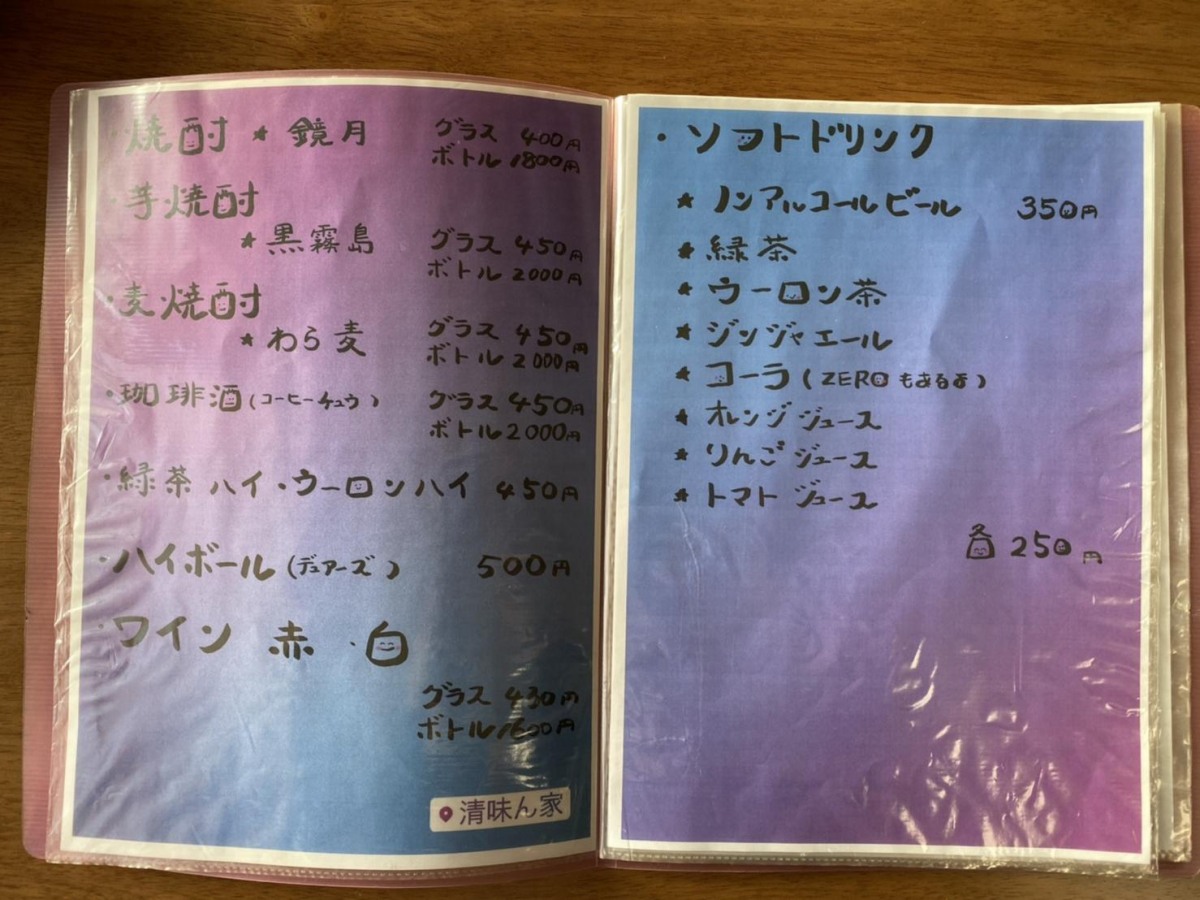 ・焼酎 ★ 鏡月 グラス 400円
ボトル 1800円
・芋焼酎
★ 黒霧島 グラス 450円
ボトル 2000円
・麦焼酎
★ わら麦 グラス 450円
ボトル 2000円
・珈琲酒(コーヒーチュウ) グラス 450円
ボトル 2000円
・緑茶ハイ・ウーロンハイ 450円
・ハイボール(デュアーズ) 500円
・ワイン 赤・白
グラス 430円
ボトル 1600円
清味ん家
・ソフトドリンク
★ ノンアルコールビール 350円
★ 緑茶
★ ウーロン茶
★ ジンジャエール
★ コーラ(ZEROもあるよ)
★ オレンジジュース
★ りんごジュース
★ トマトジュース
各 250円